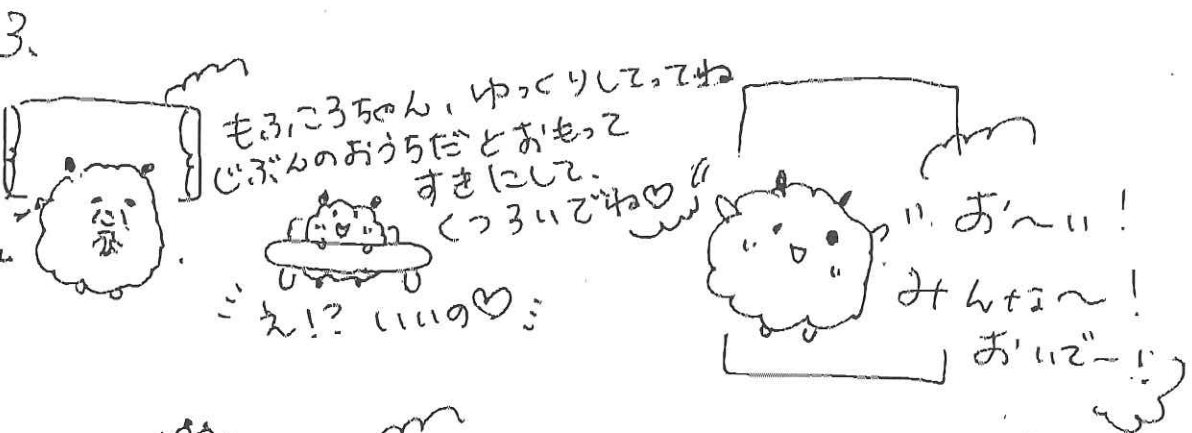 3、
もふころちゃん、ゆっくりしてってね
じぶんのおうちだとおもって
すきにして、
くつろいでね♡
え!? いいの♡
お〜い!
みんな〜!
おいで〜!